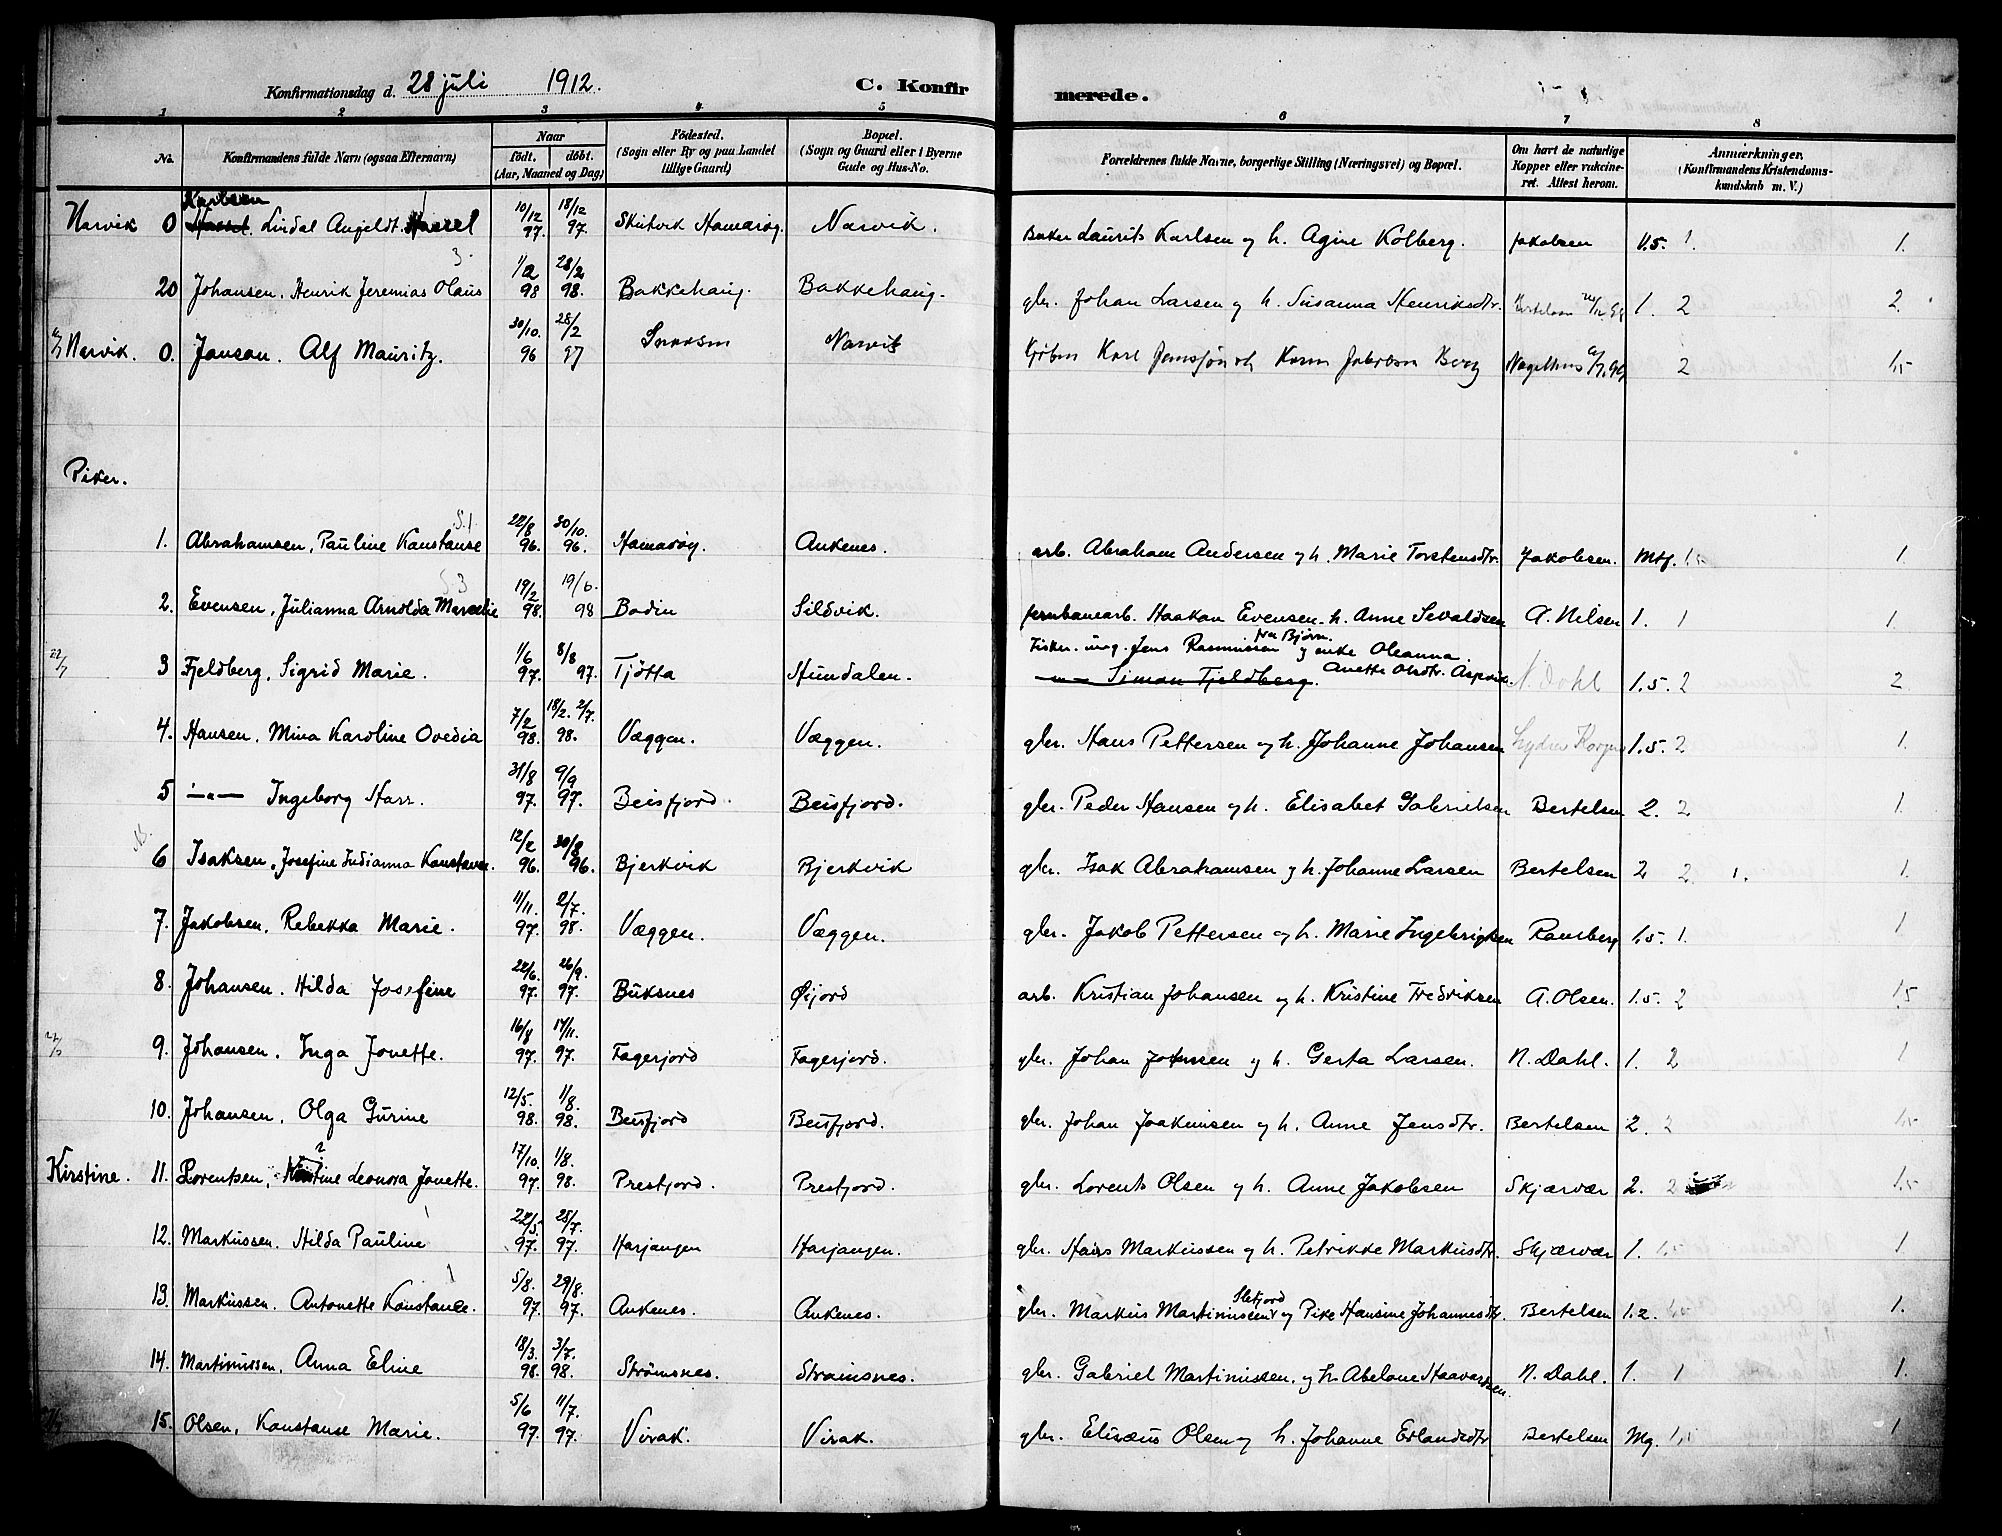 Konfirmationsdag d. 28 juli 1912. C. Konfirmerede.
1 2 3 4 5 6 7 8
No. Konfirmandens fulde Navn (ogsaa Efternavn) Naar födt. döbt. (Aar, Maaned og Dag) Födested. (Sogn eller By og paa Landet tillige Gaard) Bopæl. (Sogn og Gaard eller i Byerne Gade og Hus-No. Forældrenes fulde Navne, borgerlige Stilling (Næringsvei) og Bopæl. Om havt de naturlige Kopper eller vakcineret. Attest herom. Anmærkninger. (Konfirmandens Kristendomskundskab m. V.)
Karlsen
Narvik 0 Lindal Anfeldt 10/12 97. 18/12 97. Skutvik Hamarøy. Narvik. Baker Laurits Karlsen og h. Agine Kolberg. Jakobsen 1.5. 1. 1.
20 Johansen. Henrik Jeremias Olaus 3. 1/2 98 28/2 98. Bakkehaug. Bakkehaug. gbr. Johan Larsen og h. Susanna Henriksdtr. 1. 2 2.
Narvik. 0. Janson. Alf Mauritz. 30/10. 96 28/2 97 Narvik Karl 2 1,5
Piker.
1. Abrahamsen, Pauline Konstanse 22/8 96. 30/10. 96. Hamarøy. Ankenes. arb. Abraham Andersen og h. Marie Torstensdtr. Jakobsen. Mtg. 1.5 1.
2. Evensen, Julianna Arnolda Marselie 19/2 98. 19/6. 98 Bodin Sildvik. jernbanearb. Haakon Evensen. h. Anne Sevaldsen A. Nilsen 1. 1 1.
22/7 3 Fjeldberg, Sigrid Marie. 1/6 97. 8/8 97. Tjøtta Hundalen. Fisker. ung. Jens Rasmussen fra Bjørn. og enke Oleanna Anette Olsdtr. Aspvik. Simon Fjeldberg. N. Dahl 1.5. 2 2
4. Hansen. Mina Karoline Ovedia 7/2 98. 18/2. 2/7. 98. Væggen. Væggen. gbr. Hans Pettersen og h. Johanne Johansen 1.5. 2 1.
5 —"— Ingeborg Harr. 31/8 97. 9/9 97. Beisfjord. Beisfjord. gbr. Peder Hansen og h. Elisabet Gabrielsen Bertelsen 2. 2 1.
6 Isaksen, Josefine Indianna Konstanse. 12/2 96. 30/8 96. Bjerkvik Bjerkvik gbr. Isak Abrahamsen og h. Johanne Larsen Bertelsen 2 2 1. 1.
7. Jakobsen. Rebekka Marie. 11/11. 97. 2/7. 98. Væggen. Væggen. gbr. Jakob Pettersen og h. Marie Ingebrigtsen Ramberg 1,5. 1. 1
8. Johansen. Hilda Josefine 22/6. 97. 26/9. 97. Buksnes Øijord arb. Kristian Johansen og h. Kristine Fredriksen A. Olsen. 1.5. 2 1.5
9. Johansen. Inga Jonette. 16/8 97. 14/11. 97. Fagerjord Fagerjord. gbr. Johan Johnsen og h. Gerta Larsen. N. Dahl. 1. 2 1
10. Johansen. Olga Gurine 12/5. 98. 1/8. 98. Beisfjord Beisfjord. gbr. Johan Joakimsen og h. Anne Jensdtr. Bertelsen 2. 2 1.5
Kirstine. 11. Lorentsen, Leonora Jonette. ? 17/10. 97. 1/8. 98. Prestjord. Prestjord. gbr. Lorents Olsen og h. Anne Jakobsen Skjærvær 2. 2 1.5
12. Markussen. Hilda Pauline 22/5. 97. 25/7. 97. Harjangen Harjangen. gbr. Hans Markussen og h. Petrikke Markusdtr. Skjærvær 1. 1.5 1
13. Markussen. Antonette Konstanse. 5/8. 97. 29/8. 97. Ankenes. Ankenes. gbr. Markus Martinussen og Pike Hansine Johannesdtr. Bertelsen 1.2. 1.
14. Martinussen. Anna Eline 18/3. 98. 3/7. 98. Strømsnes. Straumsnes. gbr. Gabriel Martinussen. og h. Abelone Haavardsen. N. Dahl. 1. 1 1.
15. Olsen, Konstanse Marie. 5/6 97. 11/7. 97. Virak. Virak. gbr. Elisæus Olsen og h. Johanne Erlandsdtr Bertelsen Mg. 1,5 1